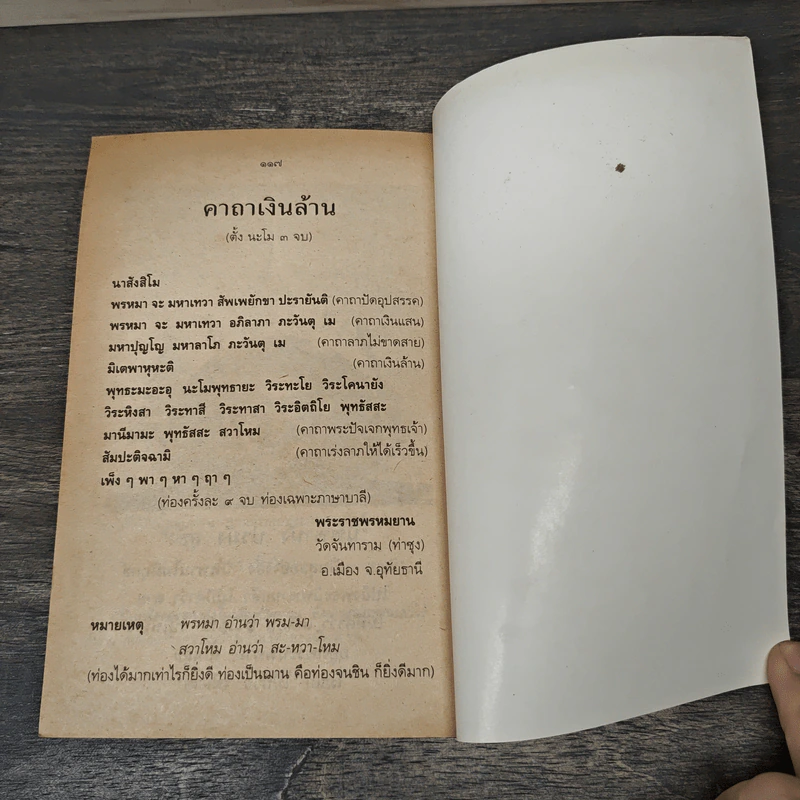 ๑๑๗
คาถาเงินล้าน
(ตั้ง นะโม ๓ จบ)
นาสังสิโม
พรหมา จะ มหาเทวา สัพเพยักขา ปะรายันติ (คาถาปัดอุปสรรค)
พรหมา จะ มหาเทวา อภิลาภา ภะวันตุ เม (คาถาเงินแสน)
มหาปุญโญ มหาลาโภ ภะวันตุ เม (คาถาลาภไม่ขาดสาย)
มิเตพาหุหะติ (คาถาเงินล้าน)
พุทธะมะอะอุ นะโมพุทธายะ วิระทะโย วิระโคนายัง
วิระหิงสา วิระทาสี วิระทาสา วิระอิตถิโย พุทธัสสะ
มานีมามะ พุทธัสสะ สวาโหม (คาถาพระปัจเจกพุทธเจ้า)
สัมปะติจฉามิ (คาถาเร่งลาภให้ได้เร็วขึ้น)
เพ็ง ๆ พา ๆ หา ๆ ฤา ๆ
(ท่องครั้งละ ๙ จบ ท่องเฉพาะภาษาบาลี)
พระราชพรหมยาน
วัดจันทาราม (ท่าซุง)
อ.เมือง จ.อุทัยธานี
หมายเหตุ พรหมา อ่านว่า พรม-มา
สวาโหม อ่านว่า สะ-หวา-โหม
(ท่องได้มากเท่าไรก็ยิ่งดี ท่องเป็นฌาน คือท่องจนชิน ก็ยิ่งดีมาก)